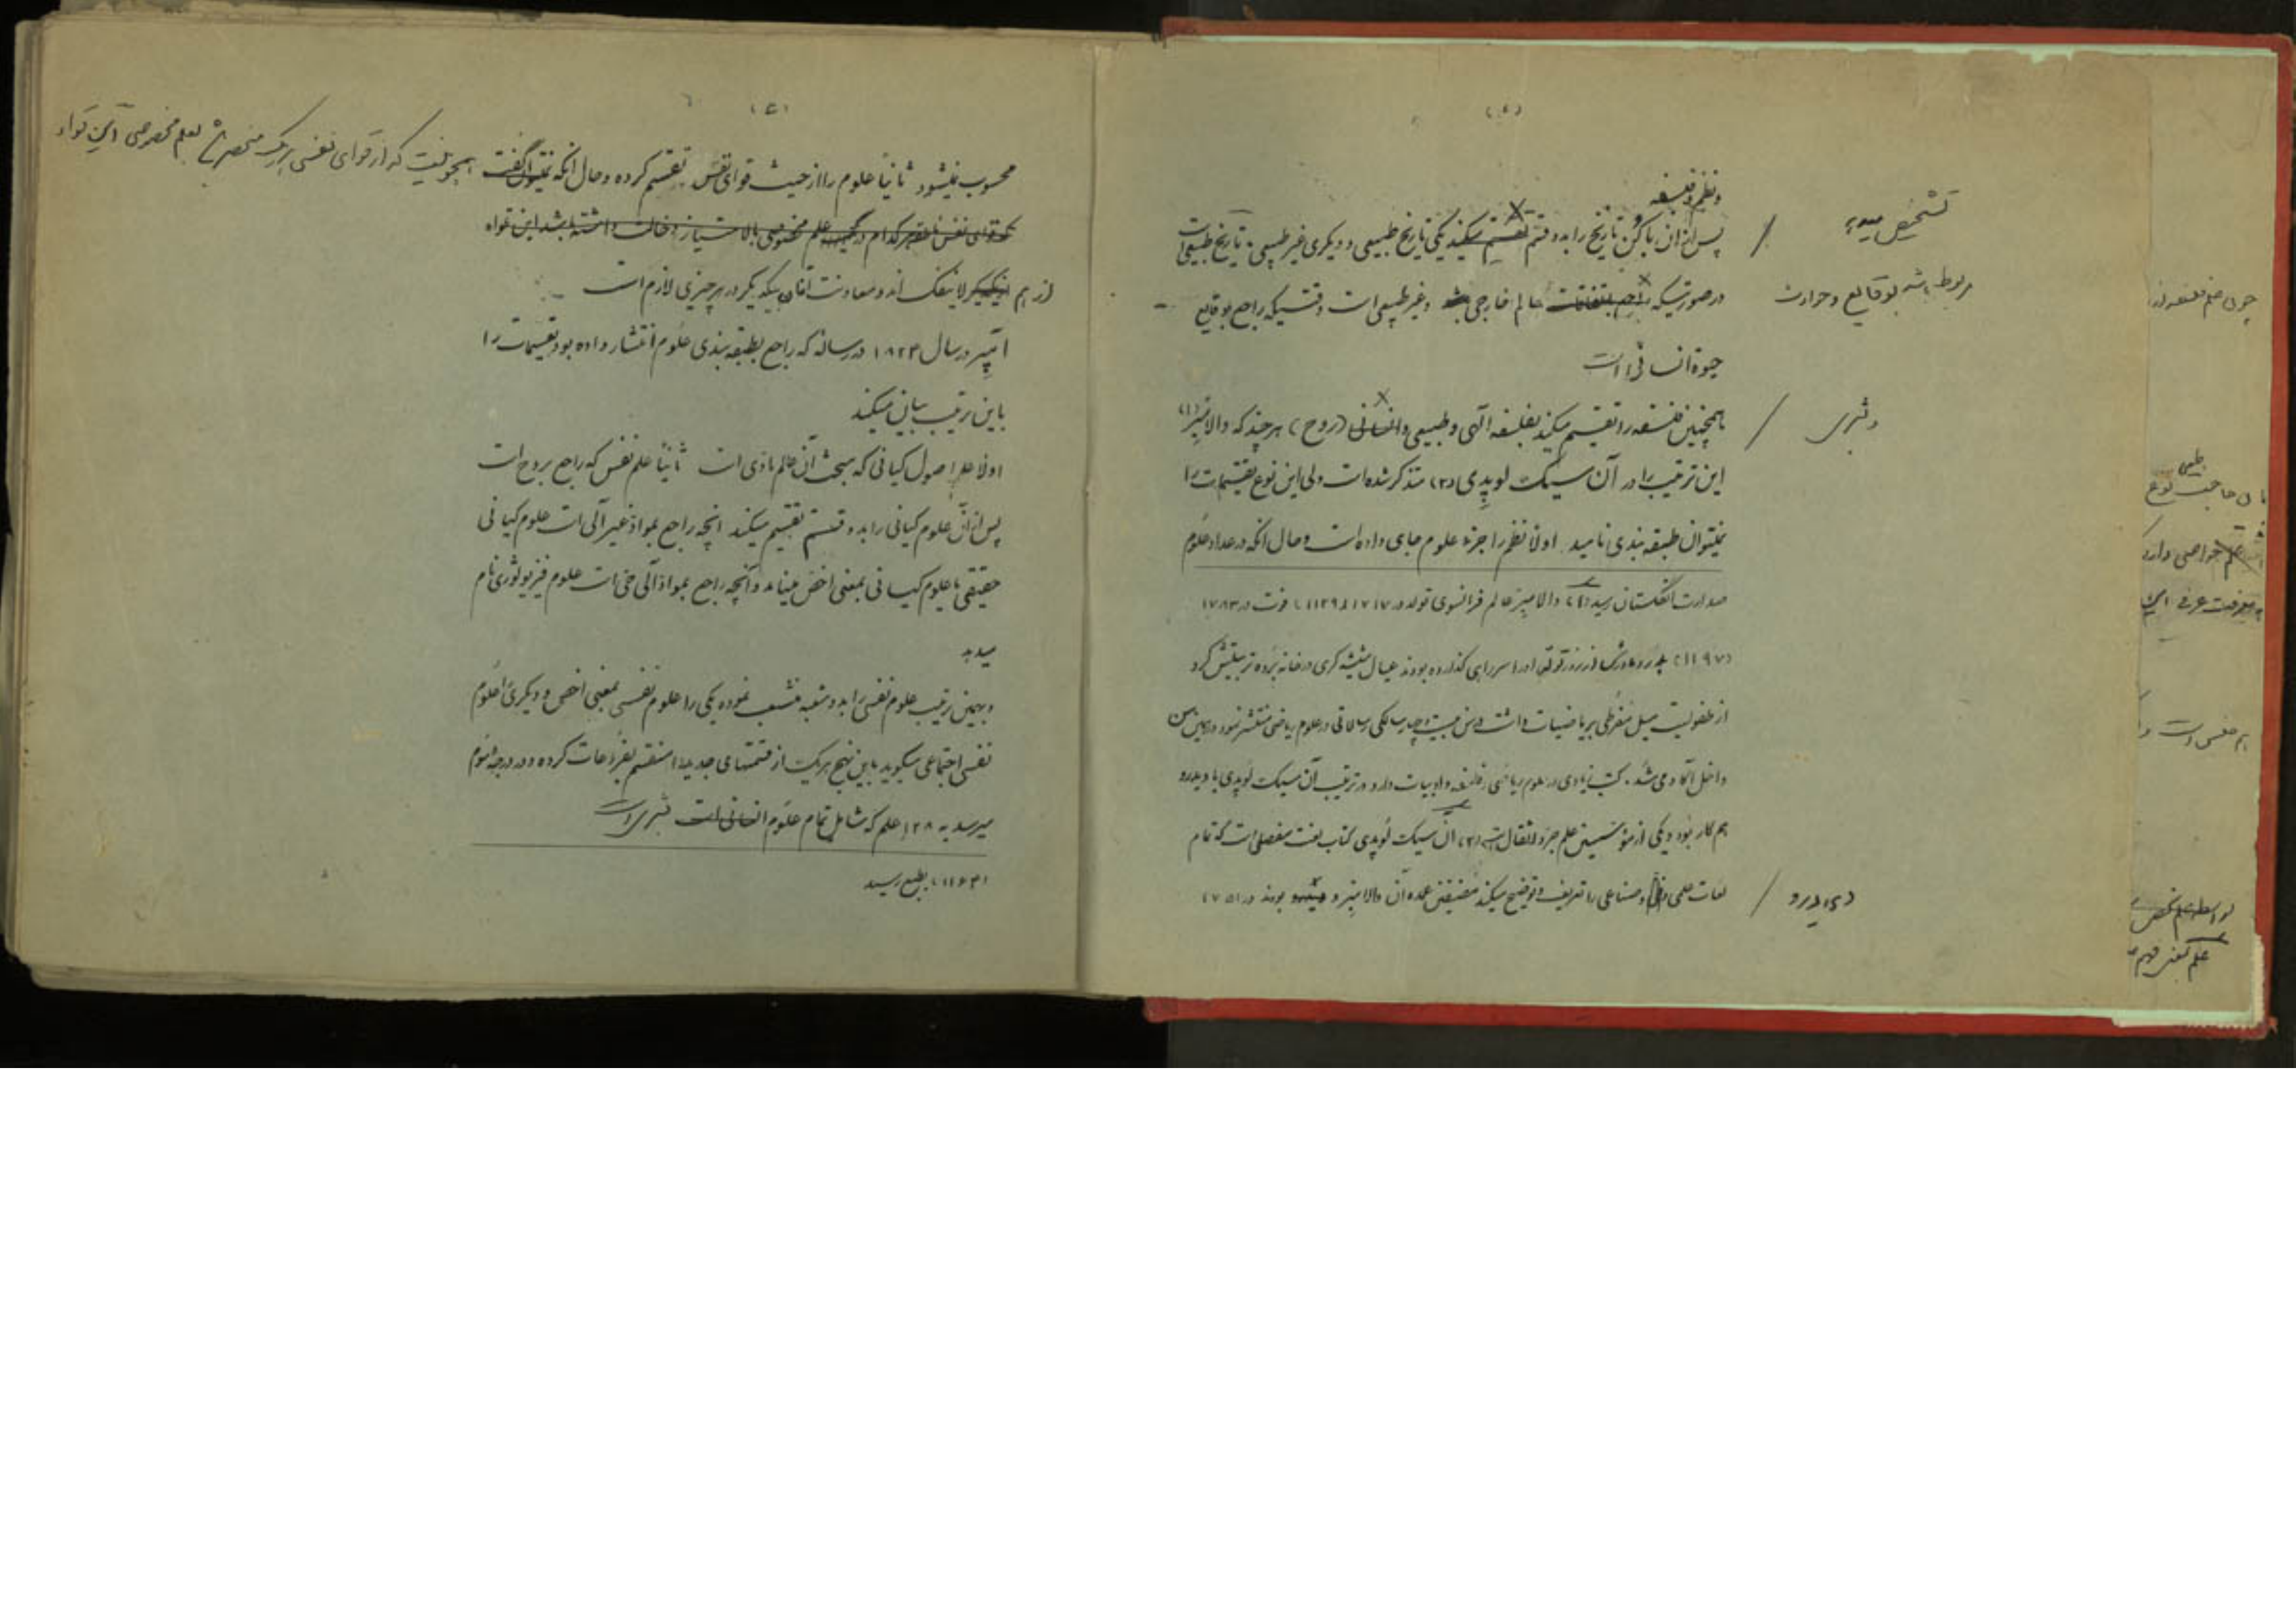 (٤)
و نظم و فلسفه
پس از آن باکن تاریخ را بدو قسم تقسیم میکند یکی تاریخ طبیعی و دیگری غیر طبیعی تاریخ طبیعی است
تشخیص میدهد
در صورتیکه راجع باتفاقات عالم خارجی باشد و غیر طبیعی است وقتیکه راجع بوقایع
مربوط باشد بوقایع و حوادث
حیوة انسانی است
همچنین فلسفه را تقسیم میکند بفلسفه آلهی و طبیعی و انسانی (روح) هر چند که دالامبر (۱)
و بشری
این ترتیب را در آن سیکلوپدی (۲) متذکر شده است ولی این نوع تقسیمات را
نمیتوان طبقه بندی نامید اولا نظم را جزء علوم جای داده است و حال آنکه در عداد علوم
صدارت انگلستان رسید (۱) دالامبر عالم فرانسوی تولد در ۱۷۱۷ (۱۱۲۹) فوت در ۱۷۸۳
(۱۱۹۷) پدر و مادرش از روز تولد او را سر راهی گذارده بودند عیال شیشه گری در خانه برده تربیتش کرد
از طفولیت میل مفرطی بریاضیات داشت در سن بیست و چهار سالگی رسالاتی در علوم ریاضی منتشر نمود و در همین سن
داخل آکادمی شد. کتب زیادی در علوم ریاضی و فلسفه و ادبیات دارد در ترتیب آن سیکلوپدی با دیدرو
هم کار بود و یکی از مؤسسین علم جر و اثقال است (۲) آن سیکلوپدی کتاب لغت مفصلی است که تمام
لغات علمی و فنی و صناعی را تعریف و توضیح میکند مصنفین عمده آن دالامبر و دیدرو بودند در ۱۷۵۱
(دیدرو)
چون علم فلسفه
طبیعی
خواصی دارد
معرفت عرفی
محسوب نمیشود ثانیاً علوم را از حیث قوای نفس تقسیم کرده و حال آنکه نمیتوان گفت هیچ نیست که از قوای نفسی هر یک منحصر باشد بعلم مخصوصی این قواء
که قوای نفس هر کدام در علم مخصوصی بالامتیاز دخالت داشته باشد این قواء
از هم یکدیگر لاینفک اند و معاونت آنان بیکدیگر در هر چیزی لازم است
آمپر در سال ۱۸۳۴ در رساله که راجع بطبقه بندی علوم انتشار داده بود تقسیمات را
باین ترتیب بیان میکند
اولا علم اصول کیانی که مبحث آن عالم مادی است ثانیاً علم نفس که راجع بروح است
پس از آن علوم کیانی را بدو قسم تقسیم میکند آنچه راجع بمواد غیر آلی است علوم کیانی
حقیقی یا علوم کیانی بمعنی اخص مینامد و آنچه راجع بمواد آلی حی است علوم فیزیولوژی نام
میدهد
و بهمین ترتیب علوم نفسی را بدو شعبه منشعب نموده یکی را علوم نفسی بمعنی اخص و دیگری را علوم
نفسی اجتماعی میگوید باین نهج هر یک از قسمتهای جدید را منقسم بفروعات کرده و در درجه سوم
میرسد به ۱۲۸ علم که شامل تمام علوم انسانی است بشری است
(۱۱۶۴) بطبع رسید